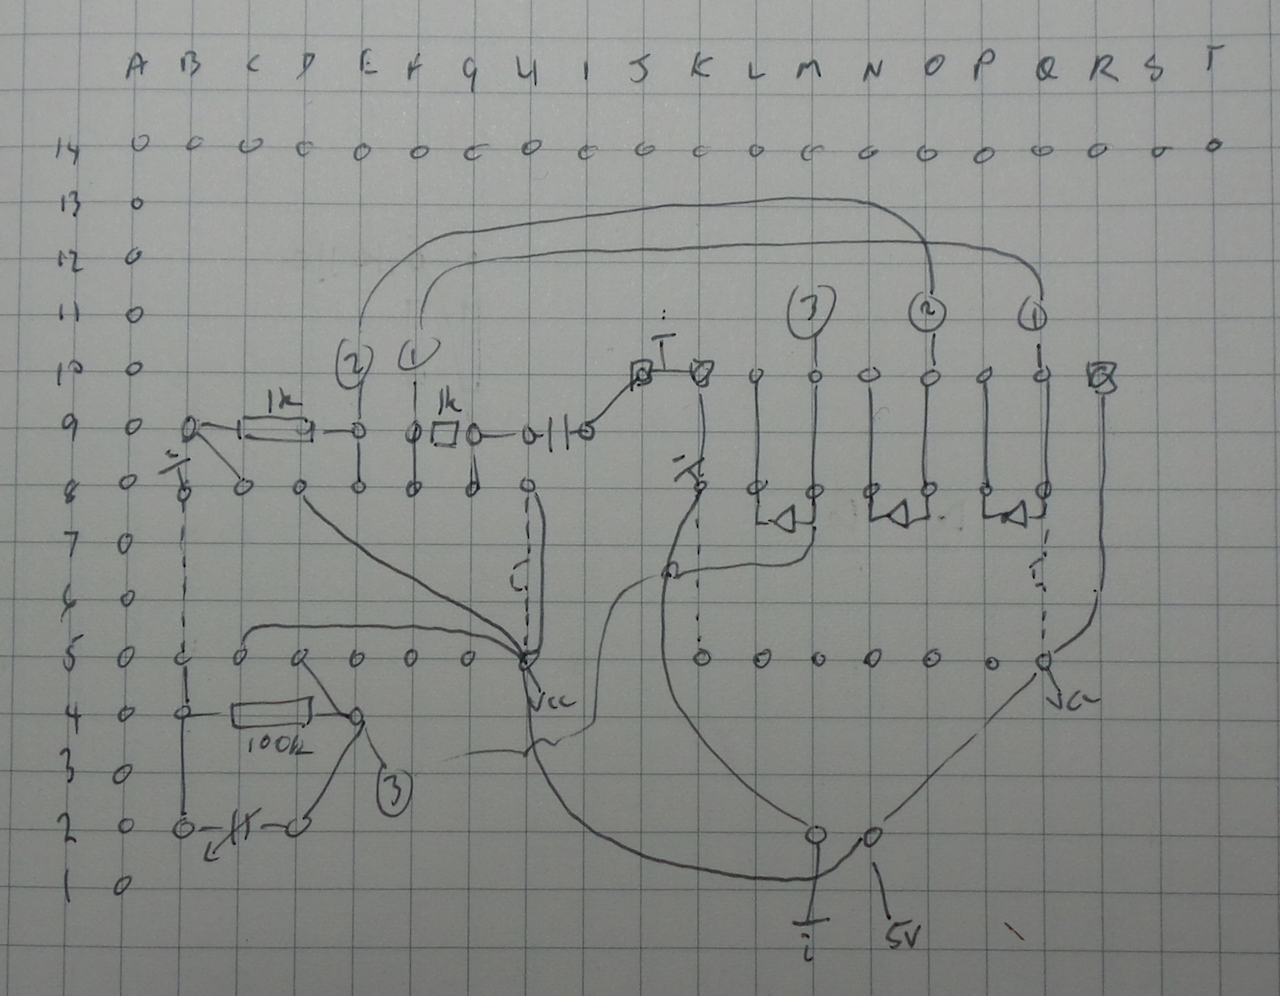 A B C D E F G H I J K L M N O P Q R S T
14
13
12
11
3
2
1
2
1
10
1k
1k
9
8
7
6
5
Vcc
Vcc
4
100k
3
3
2
1
5V